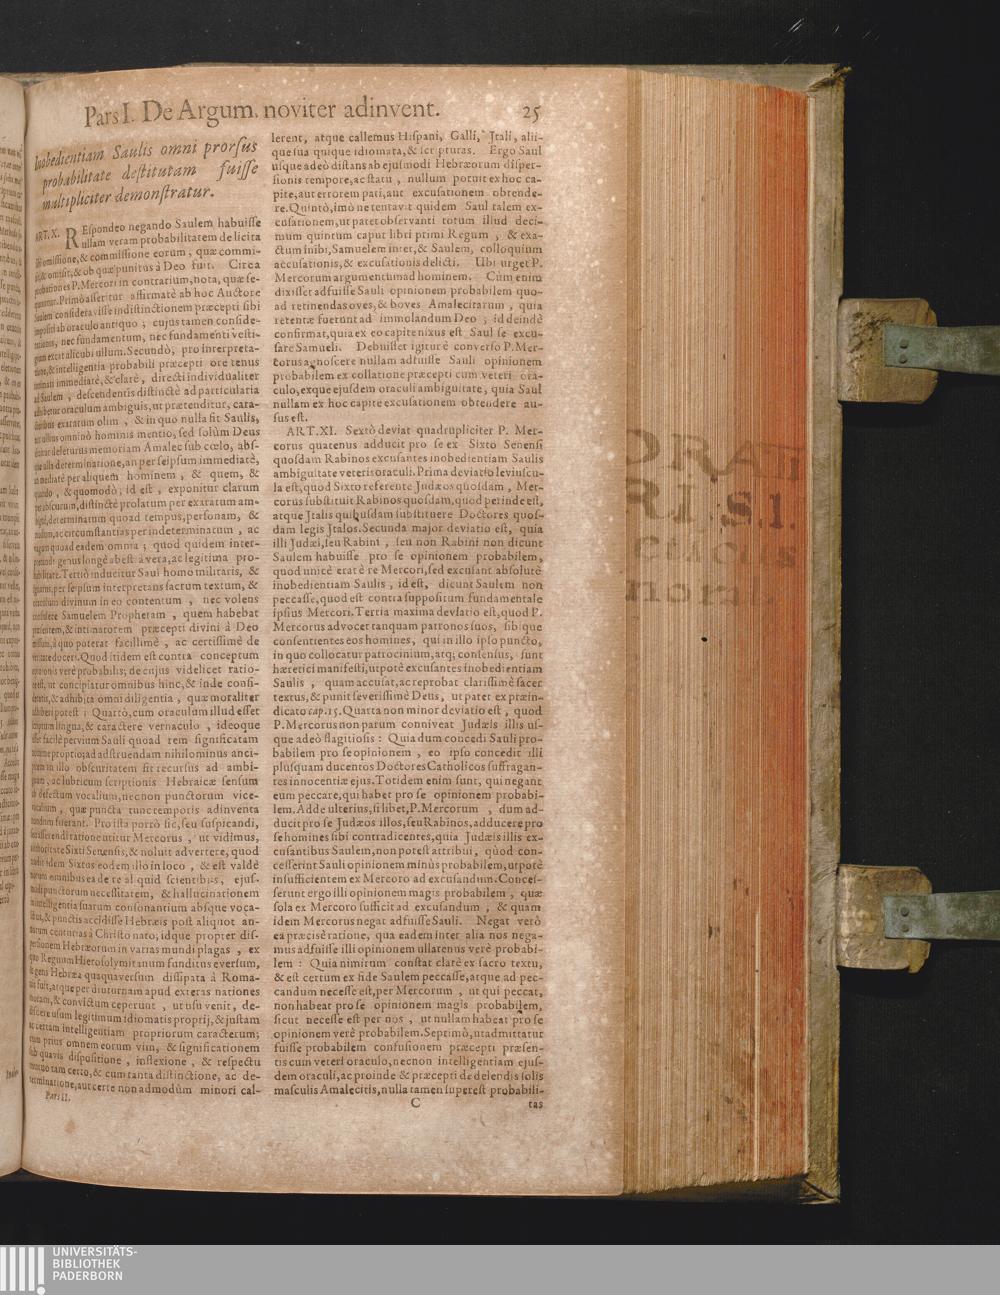 Pars I. De Argum. noviter adinvent. 25
Inobedientiam Saulis omni prorſus
probabilitate deſtitutam fuiſſe
multipliciter demonſtratur.
ART. X. REſpondeo negando Saulem habuiſſe
ullam veram probabilitatem de licita
omiſſione, & commiſſione eorum, quæ commi-
ſit, & omiſit, & ob quæ punitus à Deo fuit. Circa
probationes P. Mercori in contrarium, nota, quæ ſe-
quuntur. Primò aſſeritur affirmatè ab hoc Auctore
Saulem conſideraviſſe indiſtinctionem præcepti ſibi
impoſiti ab oraculo antiquo ; cujus tamen conſide-
rationis, nec fundamentum, nec fundamenti veſti-
gium extat alicubi ullum. Secundò, pro interpreta-
tione, & intelligentia probabili præcepti ore tenus
intimati immediatè, & clarè, directi individualiter
ad Saulem , deſcendentis diſtinctè ad particularia
adhibetur oraculum ambiguis, ut prætenditur, cara-
cteribus exaratum olim , & in quo nulla fit Saulis,
aut ullius omninò hominis mentio, ſed ſolùm Deus
dicitur deleturus memoriam Amalec ſub cœlo, abſ-
que alla determinatione, an per ſeipſum immediatè,
an mediatè per aliquem hominem , & quem, &
quando , & quomodò ; id eſt , exponitur clarum
per obſcurum, diſtinctè prolatum per exaratum am-
biguè, determinatum quoad tempus, perſonam, &
modum, ac circumſtantias per indeterminatum , ac
vagum quoad eadem omnia ; quod quidem inter-
pretandi genus longè abeſt à vera, ac legitima pro-
babilitate. Tertiò inducitur Saul homo militaris, &
ignarus, per ſeipſum interpretans ſacrum textum, &
conſilium divinum in eo contentum , nec volens
conſulere Samuelem Prophetam , quem habebat
præſentem, & intimatorem præcepti divini à Deo
miſſum, à quo poterat facillimè , ac certiſſimè de
veritate doceri. Quod itidem eſt contra conceptum
opinionis verè probabilis; de cujus videlicet ratio-
ne eſt, ut concipiatur omnibus hinc, & inde conſi-
deratis, & adhibita omni diligentia , quæ moraliter
adhiberi poteſt ; Quartò, cum oraculum illud eſſet
ſcriptum lingua, & caractere vernaculo , ideoque
eſſet facilè pervium Sauli quoad rem ſignificatam
nomine proprio; ad adſtruendam nihilominus anci-
pitem in illo obſcuritatem fit recurſus ad ambi-
guum, ac lubricum ſcriptionis Hebraicæ ſenſum
ob defectum vocalium, necnon punctorum vice-
vocalium , quæ puncta tunc temporis adinventa
nondum fuerant. Pro iſta porrò ſic, ſeu ſuſpicandi,
ſeu aſſerendi ratione utitur Mercorus , ut vidimus,
authoritate Sixti Senenſis, & noluit advertere, quod
tradit idem Sixtus eodem illo in loco , & eſt valdè
notum omnibus ea de re aliquid ſcientibus, ejuſ-
modi punctorum neceſſitatem, & hallucinationem
in intelligentia ſuarum conſonantium abſque voca-
libus, & punctis accidiſſe Hebræis poſt aliquot an-
norum centurias à Chriſto nato; idque propter diſ-
perſionem Hebræorum in varias mundi plagas , ex
quo Regnum Hieroſolymitanum funditus everſum,
& gens Hebræa quaquaverſum diſſipata à Roma-
nis fuit, atque per diuturnam apud exteras nationes
moram, & convictum ceperunt , ut uſu venit, de-
diſcere uſum legitimum idiomatis proprij, & juſtam
ac certam intelligentiam propriorum caracterum;
cum prius omnem eorum vim, & ſignificationem
ſub quavis diſpoſitione , inflexione , & reſpectu
mutuo tam certò, & cum tanta diſtinctione, ac de-
terminatione, aut certe non admodùm minori cal-
Pars II.
lerent, atque callemus Hiſpani, Galli, Itali, alii-
que ſua quique idiomata, & ſcripturas. Ergo Saul
uſque adeò diſtans ab ejuſmodi Hebræorum diſper-
ſionis tempore, ac ſtatu , nullum potuit ex hoc ca-
pite, aut errorem pati, aut excuſationem obtende-
re. Quintò, imò ne tentavit quidem Saul talem ex-
cuſationem, ut patet obſervanti totum illud deci-
mum quintum caput libri primi Regum , & exa-
ctum inibi, Samuelem inter, & Saulem, colloquium
accuſationis, & excuſationis delicti. Ubi urget P.
Mercorum argumentum ad hominem. Cùm enim
dixiſſet adfuiſſe Sauli opinionem probabilem quo-
ad retinendas oves, & boves Amalecitarum , quia
retentæ fuerunt ad immolandum Deo ; id deindè
confirmat, quia ex eo capite nixus eſt Saul ſe excu-
ſare Samueli. Debuiſſet igitur è converſo P. Mer-
corus agnoſcere nullam adfuiſſe Sauli opinionem
probabilem ex collatione præcepti cum veteri ora-
culo, exque ejuſdem oraculi ambiguitate, quia Saul
nullam ex hoc capite excuſationem obtendere au-
ſus eſt.
ART. XI. Sextò deviat quadrupliciter P. Mer-
corus quatenus adducit pro ſe ex Sixto Senenſi
quoſdam Rabinos excuſantes inobedientiam Saulis
ambiguitate veteris oraculi. Prima deviatio leviuſcu-
la eſt, quod Sixto referente Judæos quoſdam , Mer-
corus ſubſtituit Rabinos quoſdam, quod perinde eſt,
atque Italis quibuſdam ſubſtituere Doctores quoſ-
dam legis Italos. Secunda major deviatio eſt, quia
illi Judæi, ſeu Rabini , ſeu non Rabini non dicunt
Saulem habuiſſe pro ſe opinionem probabilem,
quod unicè erat è re Mercori, ſed excuſant abſolutè
inobedientiam Saulis , id eſt, dicunt Saulem non
peccaſſe, quod eſt contra ſuppoſitum fundamentale
ipſius Mercori. Tertia maxima deviatio eſt, quod P.
Mercorus advocet tanquam patronos ſuos, ſibique
conſentientes eos homines, qui in illo ipſo puncto,
in quo collocatur patrocinium, atq; conſenſus, ſunt
hæretici manifeſti, utpotè excuſantes inobedientiam
Saulis , quam accuſat, ac reprobat clariſſimè ſacer
textus, & punit ſeveriſſimè Deus, ut patet ex præin-
dicato cap. 15. Quarta non minor deviatio eſt , quod
P. Mercorus non parum conniveat Judæis illis uſ-
que adeò flagitioſis : Quia dum concedi Sauli pro-
babilem pro ſe opinionem , eo ipſo concedit illi
pluſquam ducentos Doctores Catholicos ſuffragan-
tes innocentiæ ejus. Totidem enim ſunt, qui negant
eum peccare, qui habet pro ſe opinionem probabi-
lem. Adde ulterius, ſi libet, P. Mercorum , dum ad-
ducit pro ſe Judæos illos, ſeu Rabinos, adducere pro
ſe homines ſibi contradicentes, quia Judæis illis ex-
cuſantibus Saulem, non poteſt attribui, quòd con-
ceſſerint Sauli opinionem minùs probabilem, utpotè
inſufficientem ex Mercoro ad excuſandum. Conceſ-
ſerunt ergo illi opinionem magis probabilem , quæ
ſola ex Mercoro ſufficit ad excuſandum , & quam
idem Mercorus negat adfuiſſe Sauli. Negat verò
ea præcisè ratione, qua eadem inter alia nos nega-
mus adfuiſſe illi opinionem ullatenus verè probabi-
lem : Quia nimirum conſtat clarè ex ſacro textu,
& eſt certum ex fide Saulem peccaſſe, atque ad pec-
candum neceſſe eſt, per Mercorum , ut qui peccat,
non habeat pro ſe opinionem magis probabilem,
ſicut neceſſe eſt per nos , ut nullam habeat pro ſe
opinionem verè probabilem. Septimò, ut admittatur
fuiſſe probabilem confuſionem præcepti præſen-
tis cum veteri oraculo, necnon intelligentiam ejuſ-
dem oraculi, ac proinde & præcepti de delendis ſolis
maſculis Amalecitis, nulla tamen ſupereſt probabili-
C tas
ORAT
RI S.I.
UNIVERSITÄTS-
BIBLIOTHEK
PADERBORN